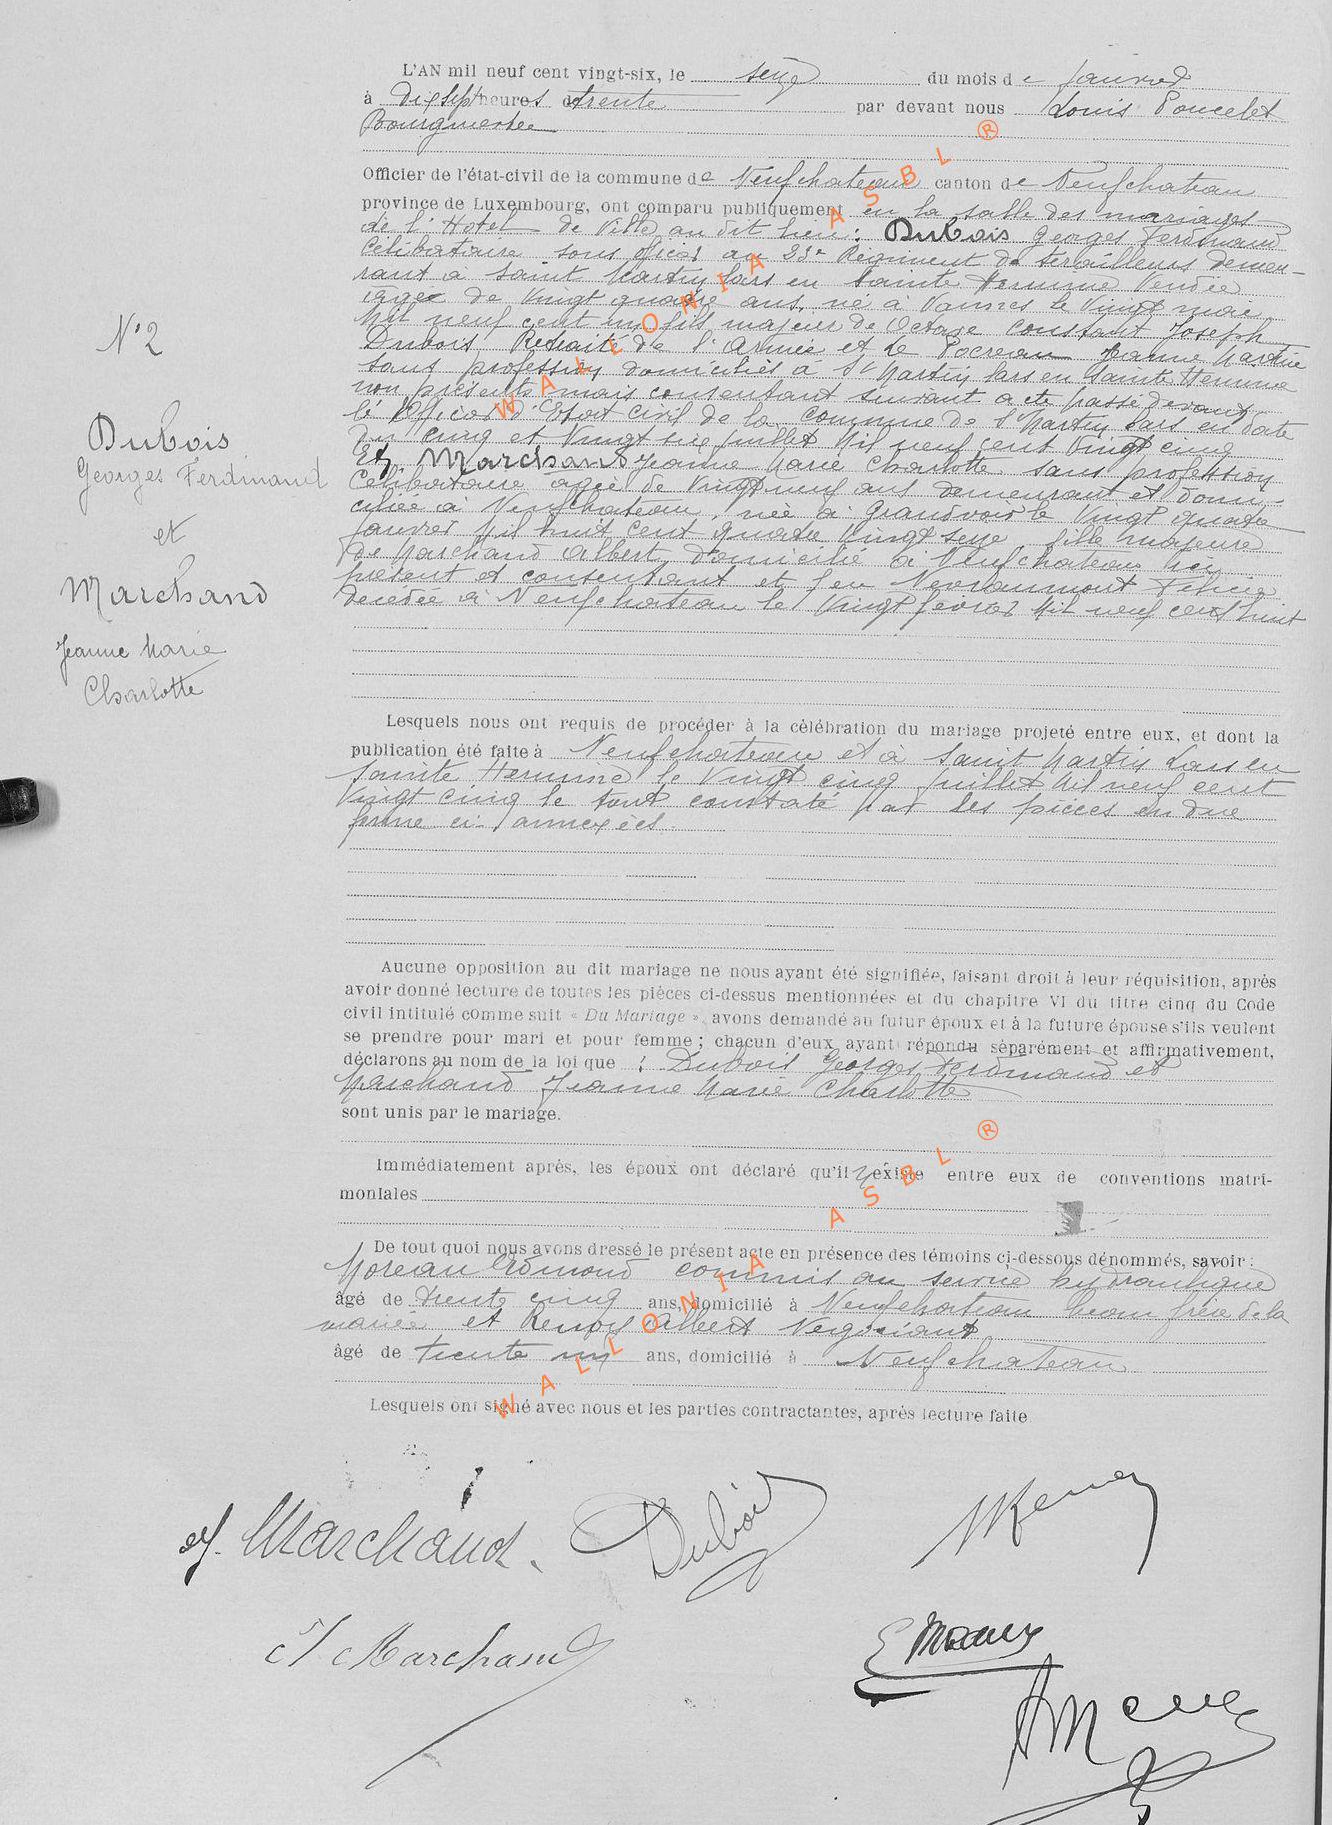 L'AN mil neuf cent vingt-six, le seize du mois de Janvier
à Dix sept heures et trente par devant nous Louis Poncelet
Bourgmestre
Officier de l'état-civil de la commune de Neufchateau canton de Neufchateau
province de Luxembourg, ont comparu publiquement en la salle des mariages
de l'Hotel de Ville au dit lieu : Dubois Georges Ferdinand
Célibataire sous officier au 23e Régiment de tirailleurs demeu-
rant à Saint Martin Lars en Sainte Hermine Vendée
agé de Vingt quatre ans, né à Vannes le Vingt mai
Mil neuf cent un fils majeur de Octave Constant Joseph
Dubois Retraité de l'Armée et de Jeanne Martine
sans profession domiciliés à St Martin Lars en Sainte Hermine
non présents mais consentant suivant acte passé devant
le Officier d'Etat Civil de la commune de St Martin Lars en date
du cinq et Vingt six Juillet Mil neuf cent Vingt cinq
Et, Marchand Jeanne Marie Charlotte sans profession
Célibataire agée de Vingt neuf ans demeurant et domi-
ciliée à Neufchateau, née à Grandvoir le Vingt quatre
Janvier Mil huit cent quatre Vingt seize, fille majeure
de Marchand Albert domicilié à Neufchateau ici
présent et consentant et feu Nevraumont Félicie
décédée à Neufchateau le Vingt fevrier Mil neuf cent huit
N°2
Dubois
Georges Ferdinand
et
Marchand
Jeanne Marie
Charlotte
Lesquels nous ont requis de procéder à la célébration du mariage projeté entre eux, et dont la
publication été faite à Neufchateau et à Saint Martin Lars en
Sainte Hermine le Vingt cinq Juillet Mil neuf cent
Vingt cinq le tout constaté par les pièces en due
forme ci-annexées.
Aucune opposition au dit mariage ne nous ayant été signifiée, faisant droit à leur réquisition, après
avoir donné lecture de toutes les pièces ci-dessus mentionnées et du chapitre VI du titre cinq du Code
civil intitulé comme suit « Du Mariage », avons demandé au futur époux et à la future épouse s'ils veulent
se prendre pour mari et pour femme ; chacun d'eux ayant répondu séparément et affirmativement,
déclarons au nom de la loi que : Dubois Georges Ferdinand et
Marchand Jeanne Marie Charlotte
sont unis par le mariage.
Immédiatement après, les époux ont déclaré qu'il existe entre eux de conventions matri-
moniales
De tout quoi nous avons dressé le présent acte en présence des témoins ci-dessous dénommés, savoir :
Moreau Edmond commis au service hydraulique
âgé de trente cinq ans, domicilié à Neufchateau beau frère de la
mariée et Renoy Albert Négociant
âgé de trente un ans, domicilié à Neufchateau
Lesquels ont signé avec nous et les parties contractantes, après lecture faite
J. Marchand. Dubois
Marchand
WALLONIA ASBL ®
WALLONIA ASBL ®